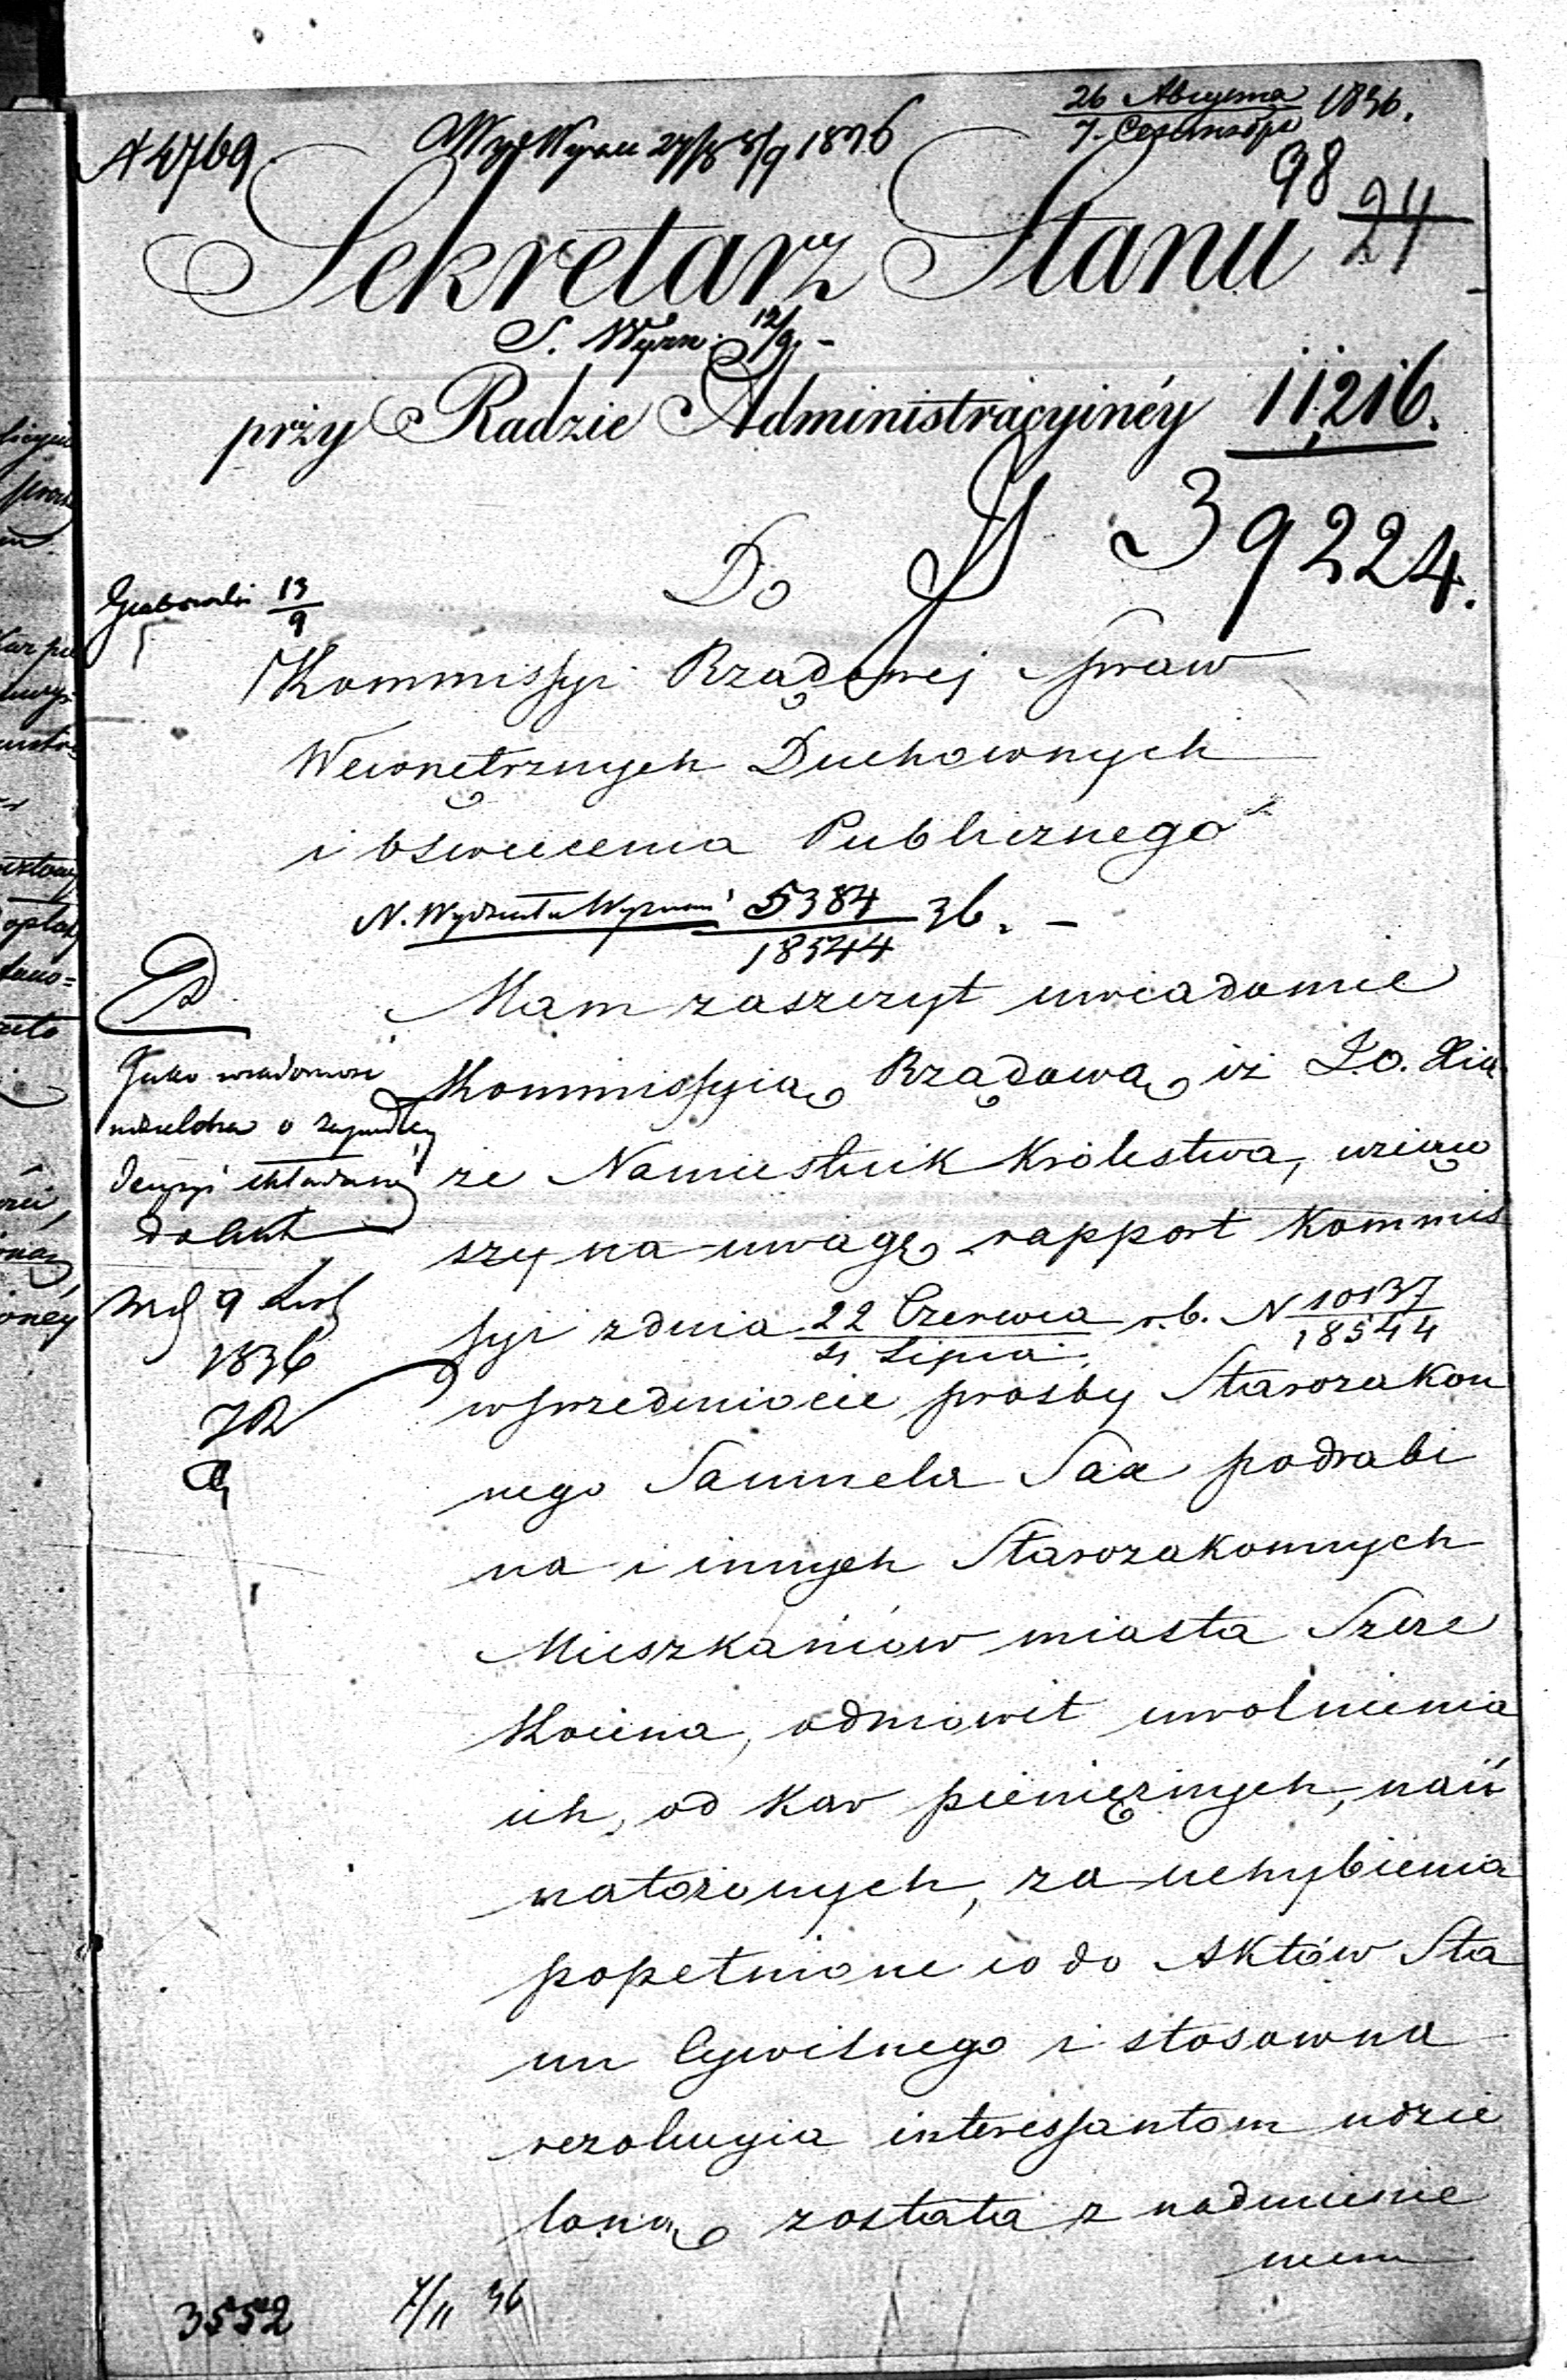 26 Августа 1836.
7. Сентября
N 4769
27/8 8/9 1836
98
24
Sekretarz Stanu
S. Wyzn. 12/9 -
przy Radzie Administracyinéy 11,216.
39224.
Do
Grabowski 13/9
Kommissyi Rządowej Spraw
Wewnętrznych Duchownych
i Oświecenia Publicznego
N. Wydziału Wyznań 5384/18544 36. -
Mam zaszczyt uwiadomić
Kommissyią Rządową iż J.O. Xią
że Namiestnik Królestwa, wziąw
szy na uwagę rapport Kommis
syi z dnia 22 Czerwca/4 Lipca r.b. N 10137/18544
w przedmiocie prosby Starozakon
nego Samuela Sax podrabi
na i innych Starozakonnych
Mieszkańców miasta Szcze
kocina, odmówił uwolnienia
ich, od kar pieniężnych, nań
nałożonych, za uchybienia
popełnione co do Aktów Sta
nu Cywilnego i stosowna
rezolucyia interessantom udzie
loną została z nadmienie
niem
Jako wiadomość
decyzyi
do Akt
9 List
1836
3552
7/11 36